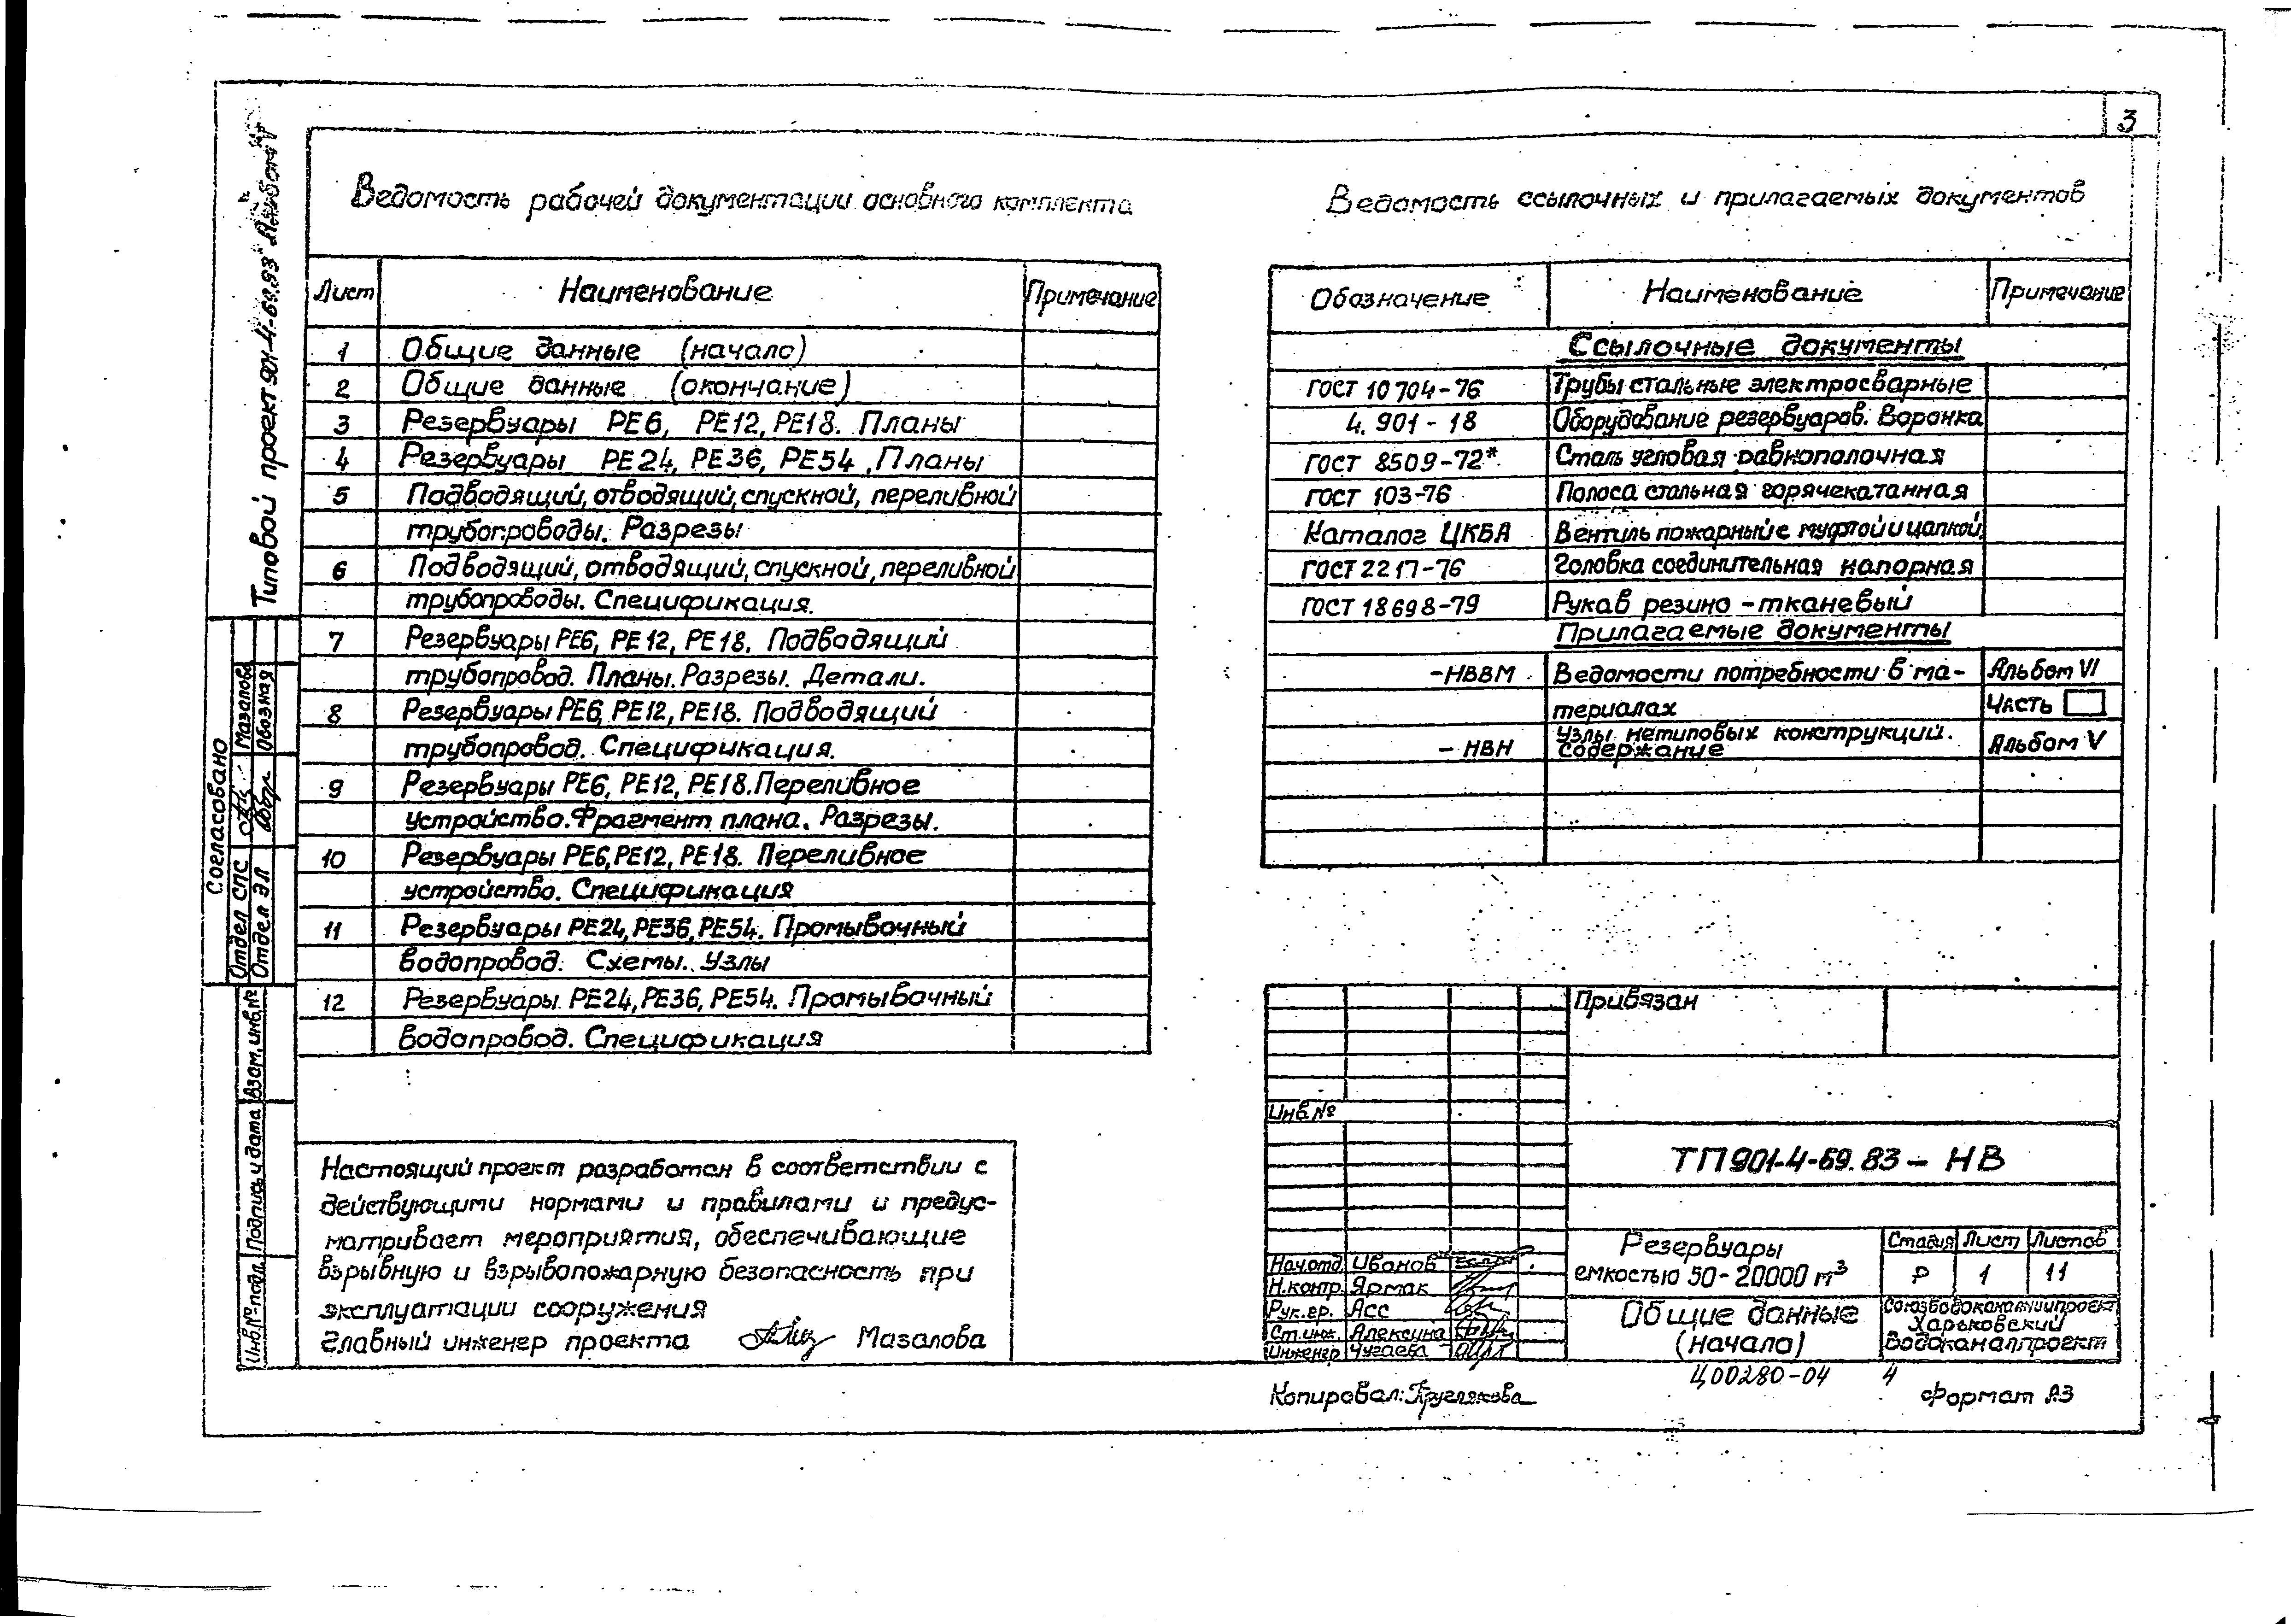 3
Типовой проект 901-4-69.83 Альбом
Ведомость рабочей документации основного комплекта
Лист Наименование Примечание
1 Общие данные (начало)
2 Общие данные (окончание)
3 Резервуары РЕ6, РЕ12, РЕ18. Планы
4 Резервуары РЕ24, РЕ36, РЕ54. Планы
5 Подводящий, отводящий, спускной, переливной
трубопроводы. Разрезы
6 Подводящий, отводящий, спускной, переливной
трубопроводы. Спецификация.
7 Резервуары РЕ6, РЕ12, РЕ18. Подводящий
трубопровод. Планы. Разрезы. Детали.
8 Резервуары РЕ6, РЕ12, РЕ18. Подводящий
трубопровод. Спецификация.
9 Резервуары РЕ6, РЕ12, РЕ18. Переливное
устройство. Фрагмент плана. Разрезы.
10 Резервуары РЕ6, РЕ12, РЕ18. Переливное
устройство. Спецификация
11 Резервуары РЕ24, РЕ36, РЕ54. Промывочный
водопровод. Схемы. Узлы
12 Резервуары. РЕ24, РЕ36, РЕ54. Промывочный
водопровод. Спецификация
Ведомость ссылочных и прилагаемых документов
Обозначение Наименование Примечание
Ссылочные документы
ГОСТ 10704-76 Трубы стальные электросварные
4.901-18 Оборудование резервуаров. Воронка
ГОСТ 8509-72* Сталь угловая равнополочная
ГОСТ 103-76 Полоса стальная горячекатанная
Каталог ЦКБА Вентиль пожарный с муфтой и цапкой
ГОСТ 2217-76 Головка соединительная напорная
ГОСТ 18698-79 Рукав резино-тканевый
Прилагаемые документы
-НВВМ Ведомости потребности в ма- Альбом VI
териалах Часть
-НВН Узлы нетиповых конструкций. Альбом V
Содержание
Согласовано
Отдел СПС Мазалова
Отдел ЭЛ Обозная
Взам. инв. №
Подпись и дата
Инв. № подл.
Настоящий проект разработан в соответствии с
действующими нормами и правилами и предус-
матривает мероприятия, обеспечивающие
взрывную и взрывопожарную безопасность при
эксплуатации сооружения
Главный инженер проекта Мазалова
Привязан
Инв. №
ТП 901-4-69.83 - НВ
Нач.отд. Иванов
Н.контр. Ярмак
Рук.гр. Асс
Ст.инж. Алексина
Инженер Чугаева
Резервуары
емкостью 50-20000 м³
Стадия Лист Листов
Р 1 11
Общие данные
(начало)
Союзводоканалниипроект
Харьковский
Водоканалпроект
Ц00280-04 4
Копировал: Круглякова
Формат А3